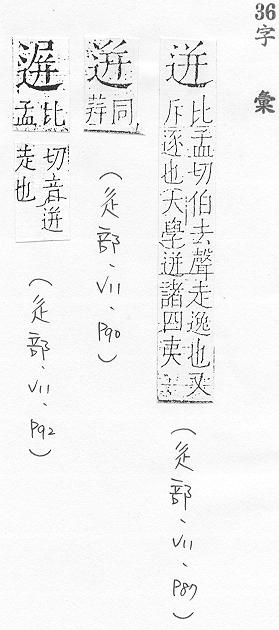 36字 彙
迸
比孟切伯去聲走逸也又
斥逐也大學迸諸四夷
(辵部、VII、P87)
同
(辵部、VII、P90)
比孟切音迸
走也
(辵部、VII、P92)